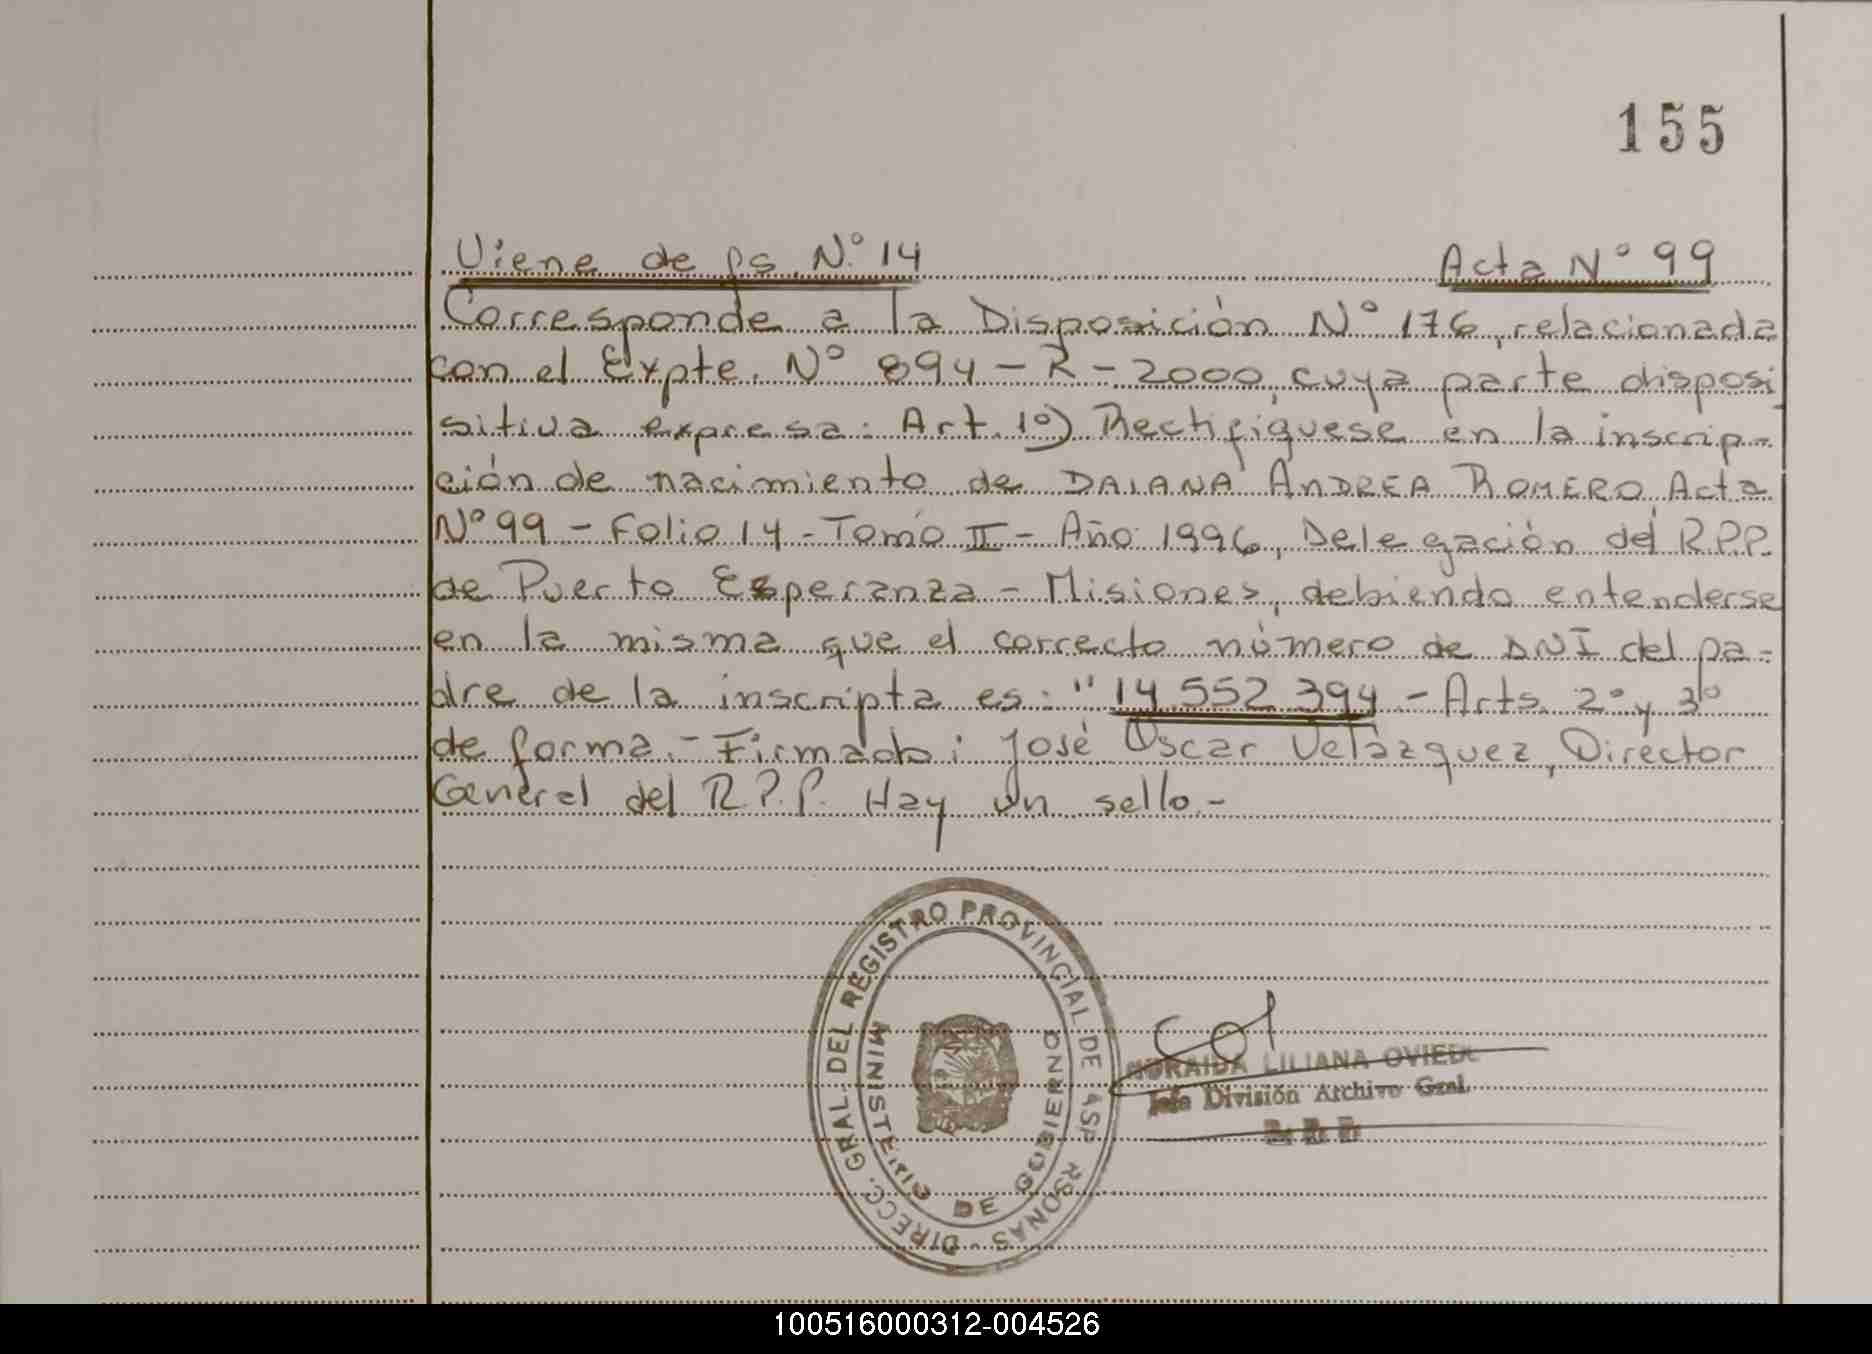 155
Viene de fs. Nº 14 Acta Nº 99
Corresponde a la Disposición Nº 176, relacionada
con el Expte. Nº 894-R-2000, cuya parte disposi
sitiva expresa: Art. 1º) Rectifiquese en la inscrip-
ción de nacimiento de DAIANA ANDREA ROMERO Acta
Nº 99 - Folio 14 - Tomo II - Año 1996, Delegación del R.P.P.
de Puerto Esperanza - Misiones, debiendo entenderse
en la misma que el correcto número de DNI del pa-
dre de la inscripta es: "14.552.394 - Arts. 2º y 3º
de forma.- Firmado: José Oscar Velázquez, Director
General del R.P.P. Hay un sello.-
DIRECC. GRAL. DEL REGISTRO PROVINCIAL DE
MINISTERIO DE GOBIERNO
LILIANA OVIEDO
Jefe División Archivo Gral.
100516000312-004526